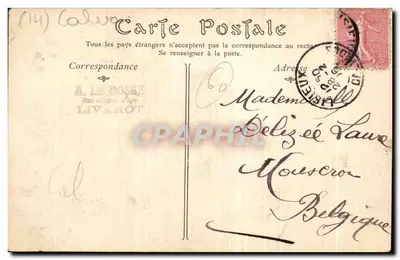 (14) Calva
Carte Postale
Tous les pays étrangers n'acceptent pas la correspondance au recto
Se renseigner à la poste.
Correspondance
Adresse
A. LE BOSSÉ
LIVAROT
LISIEUX
Mademoiselle
Délizée Laure
Mouscron
Belgique